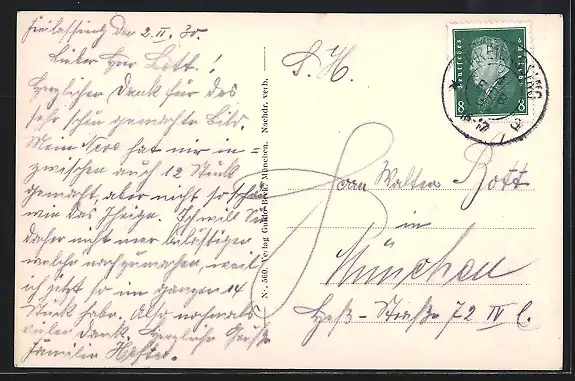 Freilassing den 2. II. 30.
Lieber Herr Bott!
Herzlichen Dank für das
sehr schön gemachte Bild.
Mein hat mir in
zwischen auch 12 Stück
gemacht, aber nicht so schön
wie das Ihrige. Ich will Sie
daher nicht mer belästigen
welche nachzumachen, weil
ich jetzt so im ganzen 14
Stück habe. Also nochmals
vielen Dank. Herzliche Grüße
Familie
Nr. 560. Verlag Guido Beck, München. Nachdr. verb.
S. H.
Deutsches Reich
8 8
Herrn Walter Bott
in
München
Heß-Straße 72 IV l.